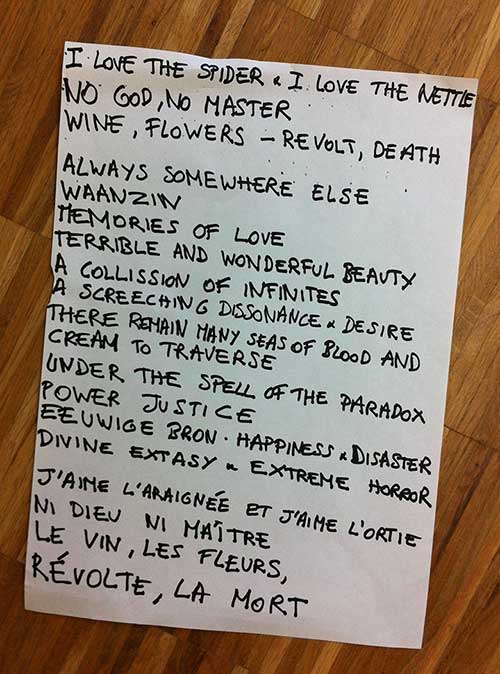 I LOVE THE SPIDER & I LOVE THE NETTLE
NO GOD, NO MASTER
WINE, FLOWERS - REVOLT, DEATH
ALWAYS SOMEWHERE ELSE
WAANZIN
MEMORIES OF LOVE
TERRIBLE AND WONDERFUL BEAUTY
A COLLISSION OF INFINITES
A SCREECHING DISSONANCE & DESIRE
THERE REMAIN MANY SEAS OF BLOOD AND
CREAM TO TRAVERSE
UNDER THE SPELL OF THE PARADOX
POWER JUSTICE
EEUWIGE BRON. HAPPINESS & DISASTER
DIVINE EXTASY & EXTREME HORROR
J'AIME L'ARAIGNÉE ET J'AIME L'ORTIE
NI DIEU NI MAÎTRE
LE VIN, LES FLEURS,
RÉVOLTE, LA MORT